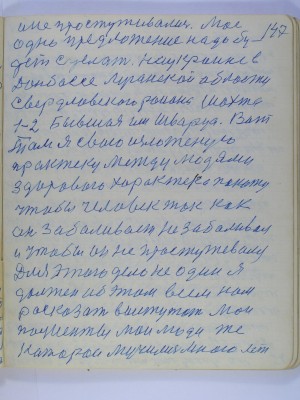 и не простуживался. Мое 147
одно предложение надо бу
дет сделат. Не на Украине в
Донбассе Луганской области
Свердловского района Шахта
1-2 Бывшая им Шварца. Вот
Там я свою изложеную
практеку между людями
здорового характера покажу
чтобы человек так как
он заболивает не забаливал
и чтобы он не простужевалс
Для этого дело не один я
должен об этом всем нам
расказат выступят мои
пациенты мои люди же
Которои мучились много лет